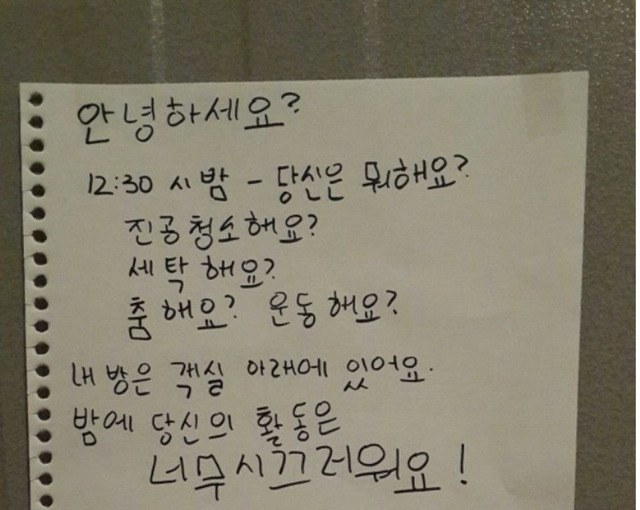 안녕하세요?
12:30 시 밤 - 당신은 뭐해요?
진공청소해요?
세탁해요?
춤해요? 운동해요?
내 방은 객실 아래에 있어요.
밤에 당신의 활동은
너무시끄러워요!